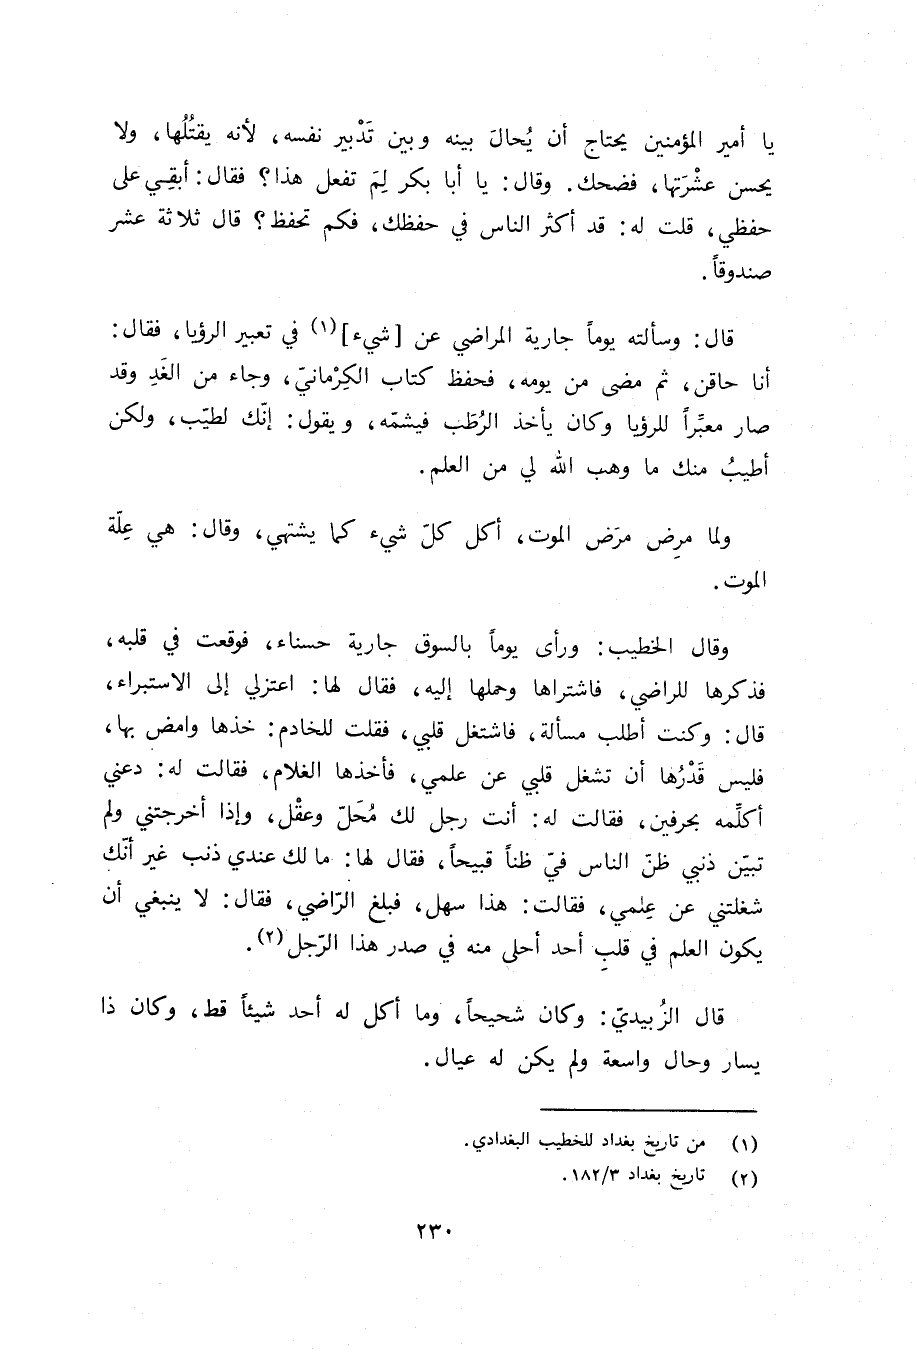 يا أمير المؤمنين يحتاج أن يُحالَ بينه وبين تَدْبير نفسه، لأنه يقتُلُها، ولا
يحسن عشْرَتها، فضحك. وقال: يا أبا بكر لِمَ تفعل هذا؟ فقال: أبقِي على
حفظي، قلت له: قد أكثر الناس في حفظك، فكم تحفظ؟ قال ثلاثة عشر
صندوقاً.
قال: وسألته يوماً جارية المراضي عن [شيء](١) في تعبير الرؤيا، فقال:
أنا حاقن، ثم مضى من يومه، فحفظ كتاب الكِرْمانيّ، وجاء من الغَدِ وقد
صار معبِّراً للرؤيا وكان يأخذ الرُطَب فيشمّه، ويقول: إنّك لطيّب، ولكن
أطيبُ منك ما وهب الله لي من العلم.
ولما مرِض مرَض الموت، أكل كلّ شيء كما يشتهي، وقال: هي عِلّة
الموت.
وقال الخطيب: ورأى يوماً بالسوق جارية حسناء، فوقعت في قلبه،
فذكرها للراضي، فاشتراها وحملها إليه، فقال لها: اعتزلي إلى الاستبراء،
قال: وكنت أطلب مسألة، فاشتغل قلبي، فقلت للخادم: خذها وامض بها،
فليس قَدْرُها أن تشغل قلبي عن علمي، فأخذها الغلام، فقالت له: دعني
أكلِّمه بحرفين، فقالت له: أنت رجل لك مُحَلّ وعقْل، وإذا أخرجتني ولم
تبيّن ذنبي ظنّ الناس فيّ ظناً قبيحاً، فقال لها: مالك عندي ذنب غير أنّك
شغلتني عن عِلمي، فقالت: هذا سهل، فبلغ الرّاضي، فقال: لا ينبغي أن
يكون العلم في قلبِ أحد أحلى منه في صدر هذا الرّجل(٢).
قال الزُبيديّ: وكان شحيحاً، وما أكل له أحد شيئاً قط، وكان ذا
يسار وحال واسعة ولم يكن له عيال.
(١) من تاريخ بغداد للخطيب البغدادي.
(٢) تاريخ بغداد ١٨٢/٣.
٢٣٠